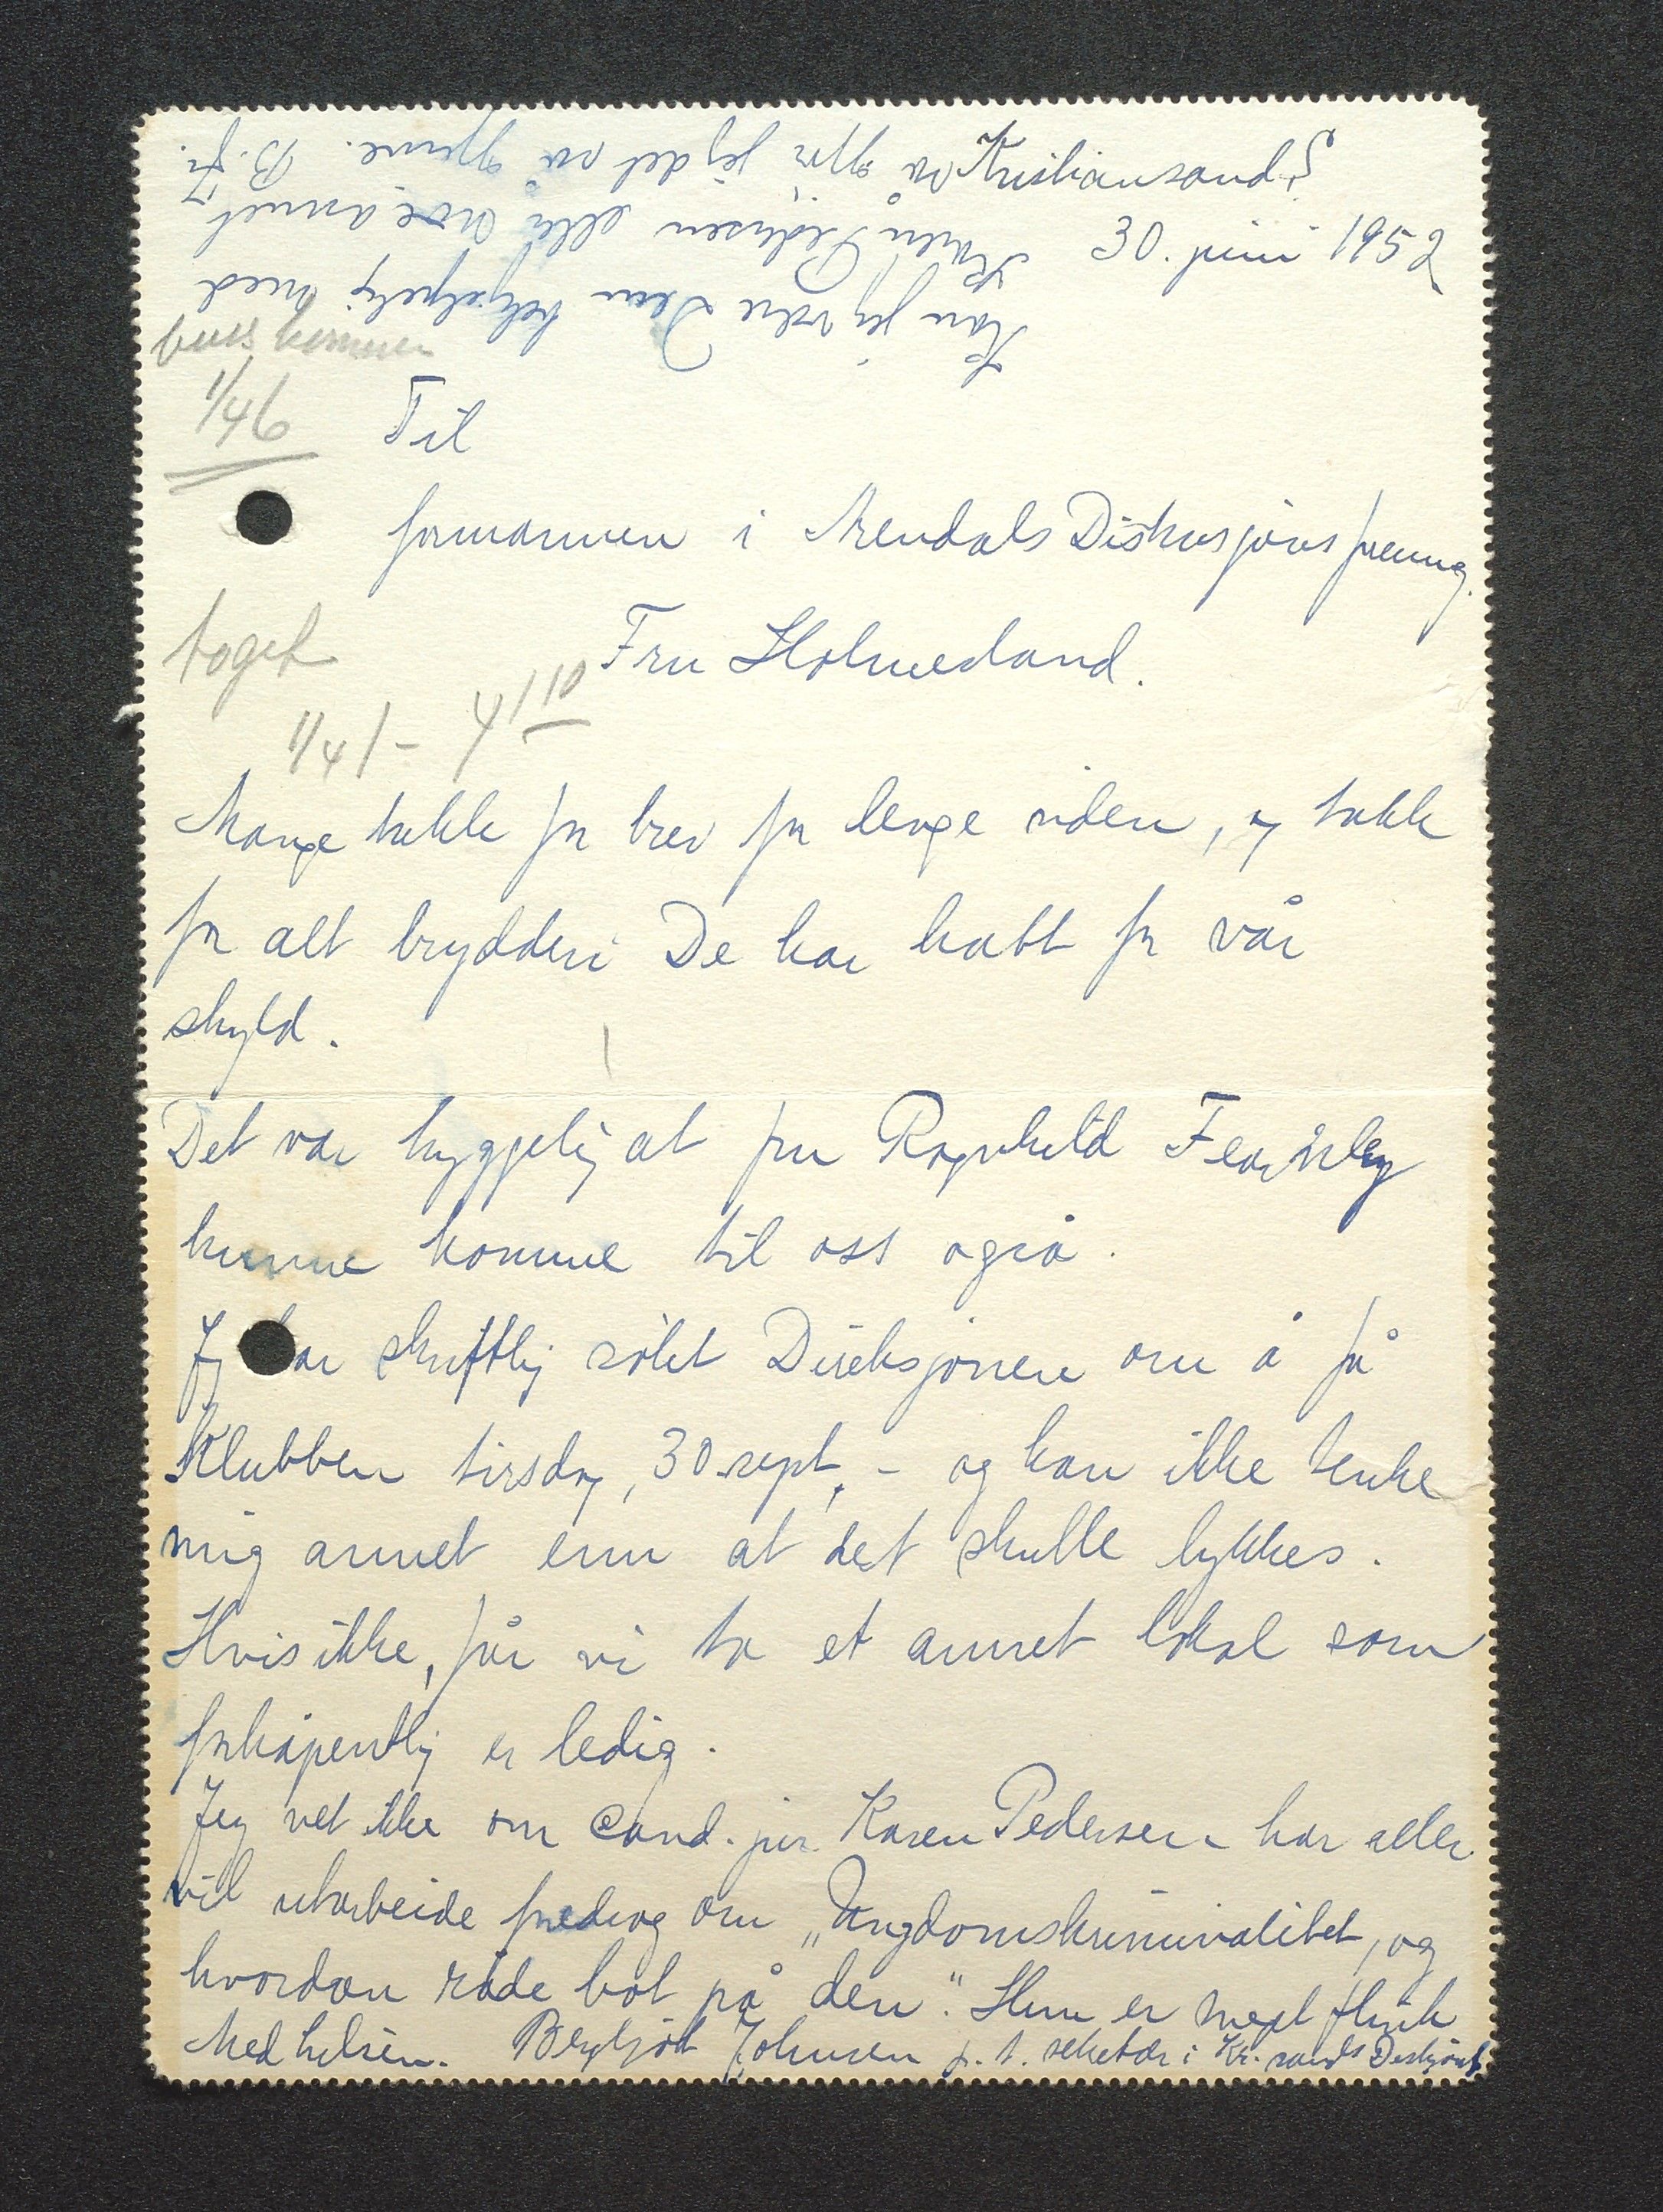 Kristiansand S
30. juni 1952
buss kommer
1/46
Til
formannen i Arendals Diskusjonsforening.
Fru Holmesland.
toget
1/41 - 4/10
Mange takk for brev for lenge siden, og takk
for alt brydderi De har hatt for vår
skyld.
Det var hyggelig at fru Ragnhild
kunne komme til oss også.
Jeg har skriftlig søkt Direksjonen om å få
Klubben tirsdag, 30. sept, - og kan ikke tenke
mig annet enn at det skulle lykkes.
Hvis ikke, får vi ta et annet lokal som
forhåpentlig er ledig.
Jeg vet ikke om cand. jur. Karen Pedersen har eller
vil utarbeide foredrag om "Ungdomskriminalitet, og
hvordan råde bot på den." Hun er meget flink
Med hilsen. Bergljot Johnsen p.t. sekretær i Kr.sands Diskjonsf.
Kan jeg være Dem behjelpelig med
Karen Pedersen eller noe annet
så gjør jeg det så gjerne. B. J.